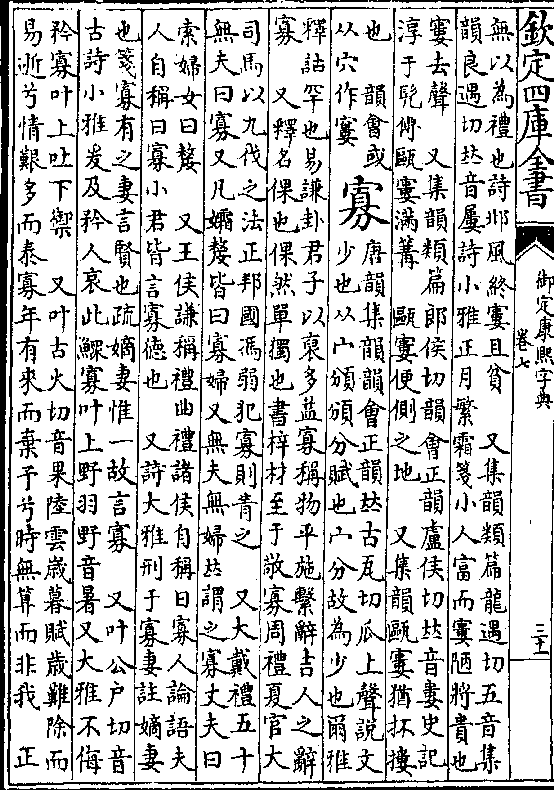 欽定四庫全書
御定康熙字典
卷七
三十一
無以為禮也詩邶風終窶且貧　又集韻類篇龍遇切五音集
韻良遇切𠀤音屨詩小雅正月繁霜箋小人富而窶陋將貴也
窶去聲　又集韻類篇郎侯切韻會正韻盧侯切𠀤音婁史記
淳于髠傳甌窶滿篝　甌窶便側之地　又集韻甌窶猶抔摟
也　韻會或
从穴作窶
寡
唐韻集韻韻會正韻𠀤古瓦切瓜上聲說文
少也从宀頒頒分賦也宀分故為少也爾雅
釋詁罕也易謙卦君子以裒多益寡稱物平施繫辭吉人之辭
寡　又釋名倮也倮然單獨也書梓材至于敬寡周禮夏官大
司馬以九伐之法正邦國馮弱犯寡則眚之　又大戴禮五十
無夫曰寡又凡孀嫠皆曰寡婦又無夫無婦𠀤謂之寡丈夫曰
索婦女曰嫠　又王侯謙稱禮曲禮諸侯自稱曰寡人論語夫
人自稱曰寡小君皆言寡德也　又詩大雅刑于寡妻註嫡妻
也箋寡有之妻言賢也疏嫡妻惟一故言寡　又叶公户切音
古詩小雅爰及矜人哀此鰥寡叶上野羽野音暑又大雅不侮
矜寡叶上吐下禦　又叶古火切音果陸雲歲暮賦歲難除而
易逝兮情艱多而泰寡年有來而棄予兮時無算而非我　正